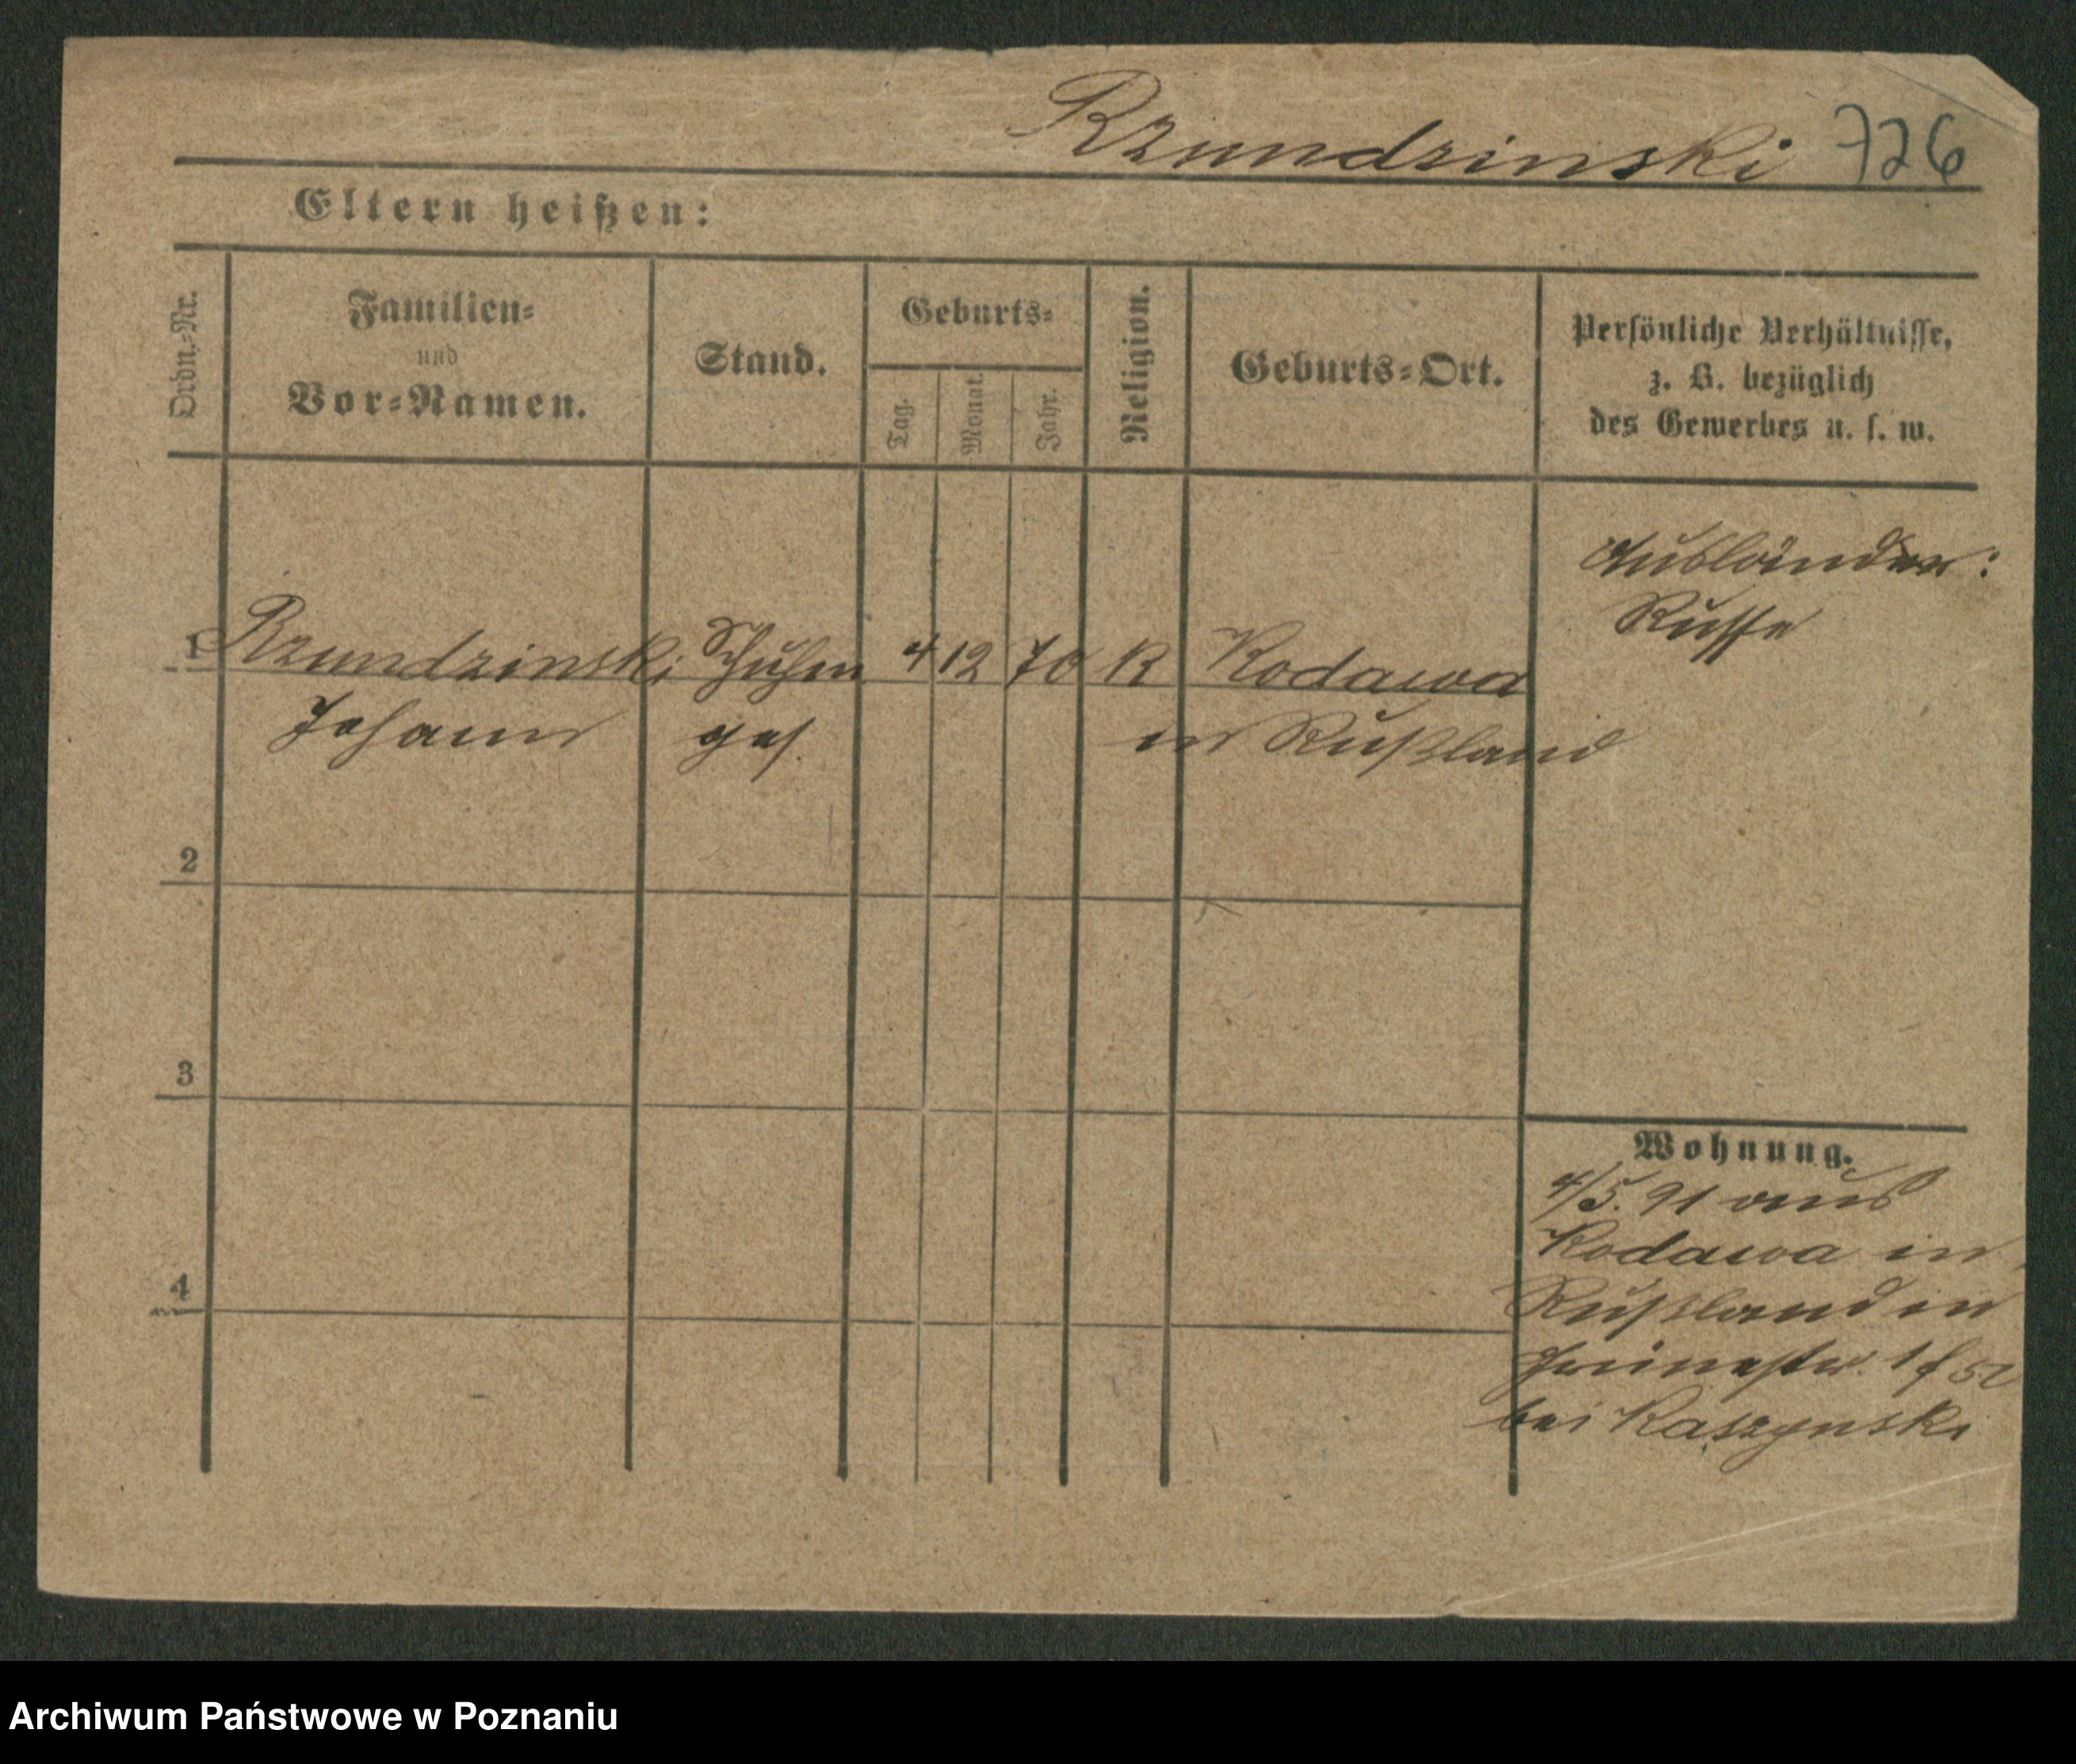 Rzundzinski 726
Eltern heißen:
Ordn.-Nr.
Familien-
und
Vor-Namen.
Stand.
Geburts-
Tag.
Monat.
Jahr.
Religion.
Geburts-Ort.
Persönliche Verhältnisse,
z. B. bezüglich
des Gewerbes u. s. w.
Ausländer:
Russe
1 Rzundzinski Schuhm 4 12 70 K Kodawa
Johann ges. in Rußland
2
3
4
Wohnung.
4/5. 91 aus
Kodawa in
Rußland in
bei Kaszynski
Archiwum Państwowe w Poznaniu